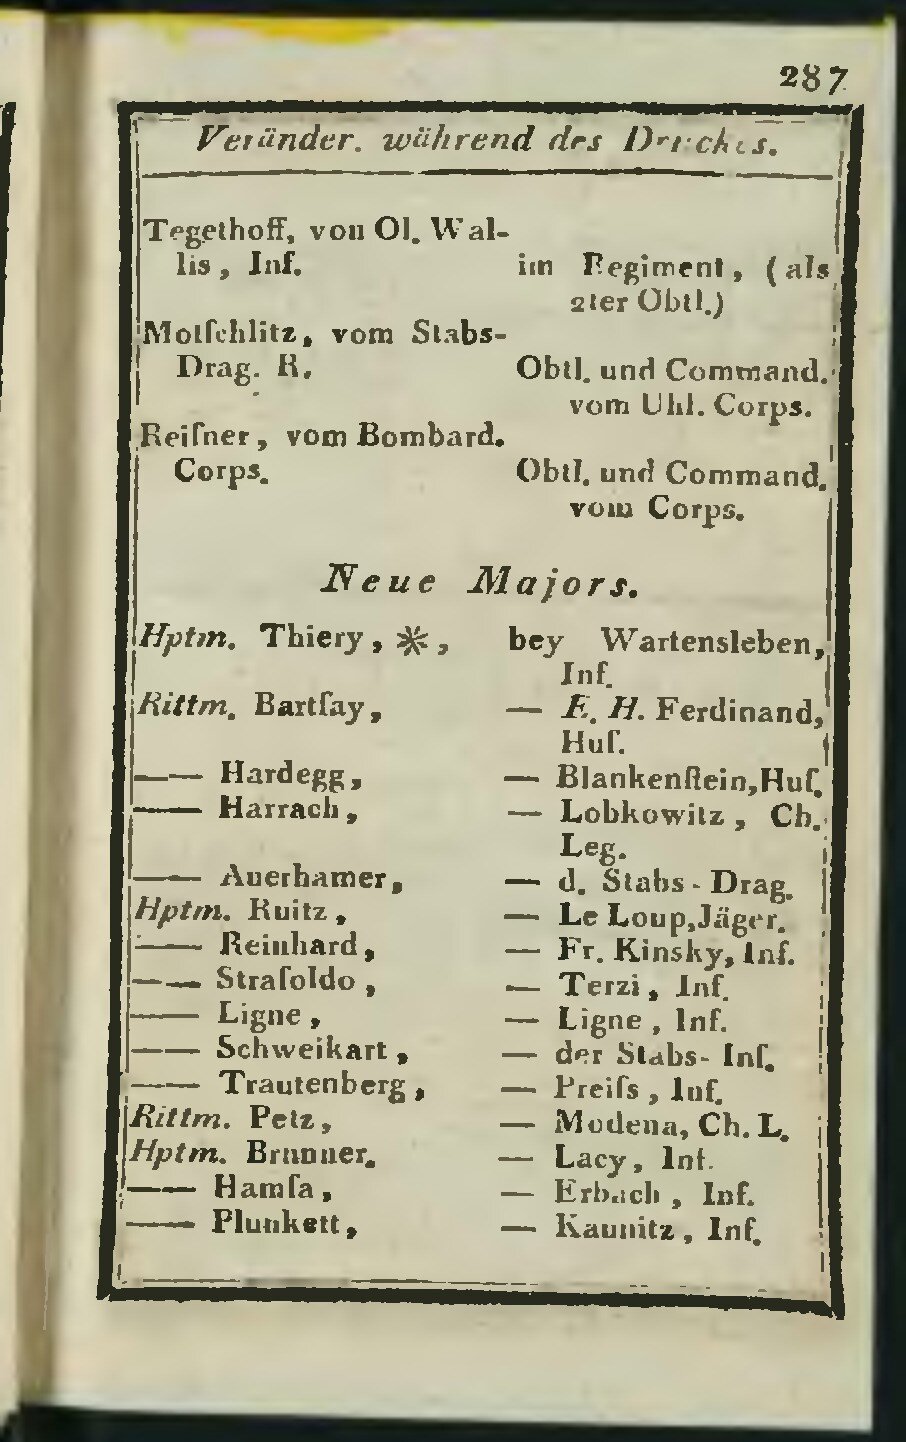 287
Veränder. während des Druckes.
Tegethoff, von Ol. Wal-
lis, Inf. im Regiment, (als
2ter Obtl.)
Motſchlitz, vom Stabs-
Drag. R. Obtl. und Command.
vom Uhl. Corps.
Reiſner, vom Bombard.
Corps. Obtl. und Command.
vom Corps.
Neue Majors.
Hptm. Thiery, ✻, bey Wartensleben,
Inf.
Rittm. Bartſay, — E. H. Ferdinand,
Huſ.
—— Hardegg, — Blankenſtein, Huſ.
—— Harrach, — Lobkowitz, Ch.
Leg.
—— Auerhamer, — d. Stabs-Drag.
Hptm. Ruitz, — Le Loup, Jäger.
—— Reinhard, — Fr. Kinsky, Inf.
—— Straſoldo, — Terzi, Inf.
—— Ligne, — Ligne, Inf.
—— Schweikart, — der Stabs-Inf.
—— Trautenberg, — Preiſs, Inf.
Rittm. Petz, — Modena, Ch. L.
Hptm. Brunner. — Lacy, Inf.
—— Hamſa, — Erbach, Inf.
—— Plunkett, — Kaunitz, Inf.